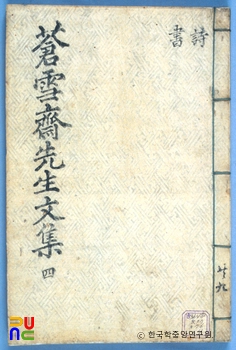 詩
書
蒼雪齋先生文集 四
共九
ⓒ 한국학중앙연구원